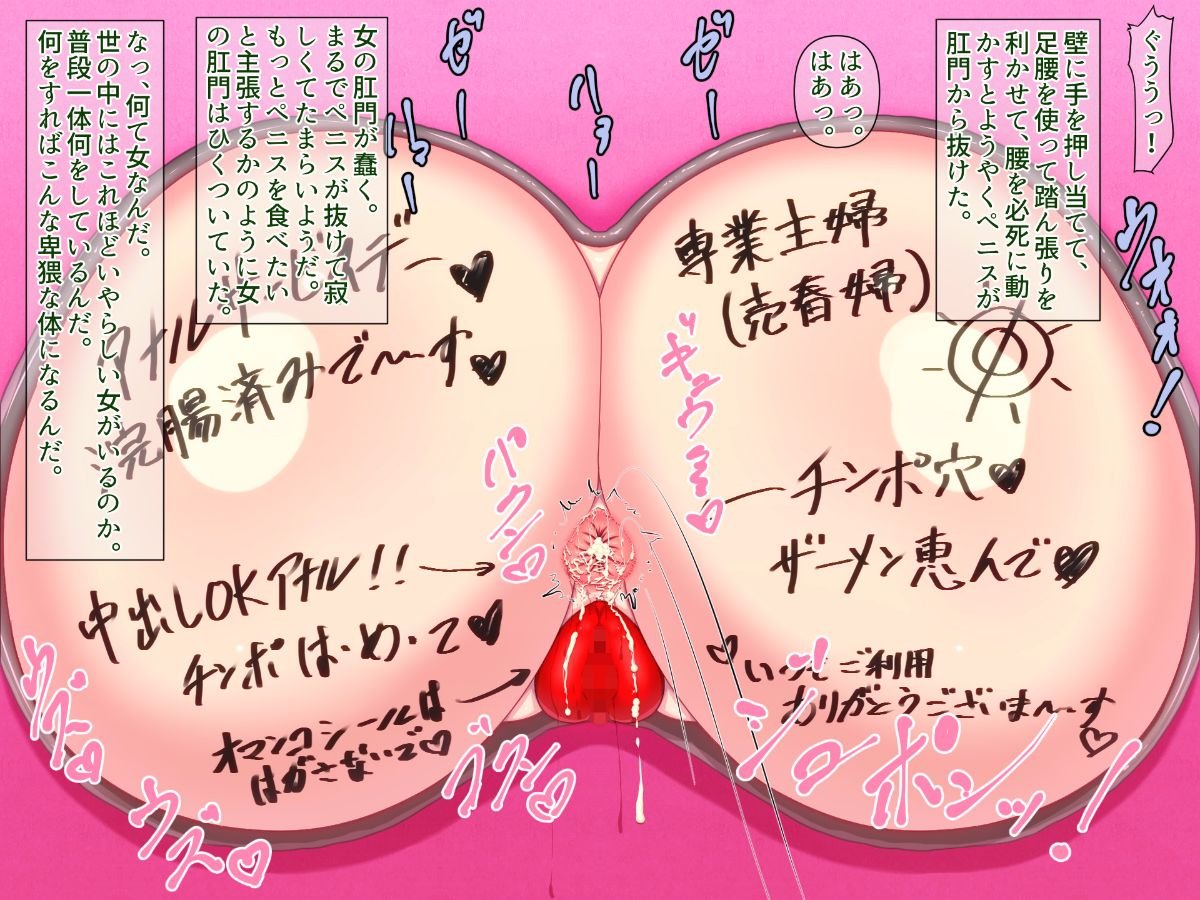 ぐううっ！
壁に手を押し当てて、
足腰を使って踏ん張りを
利かせて、腰を必死に動
かすとようやくペニスが
肛門から抜けた。
はあっ。
はあっ。
ゼー
ヒョー
ゼー
女の肛門が蠢く。
まるでペニスが抜けて寂
しくてたまらいようだ。
もっとペニスを食べたい
と主張するかのように女
の肛門はひくついていた。
なっ、何て女なんだ。
世の中にはこれほどいやらしい女がいるのか。
普段一体何をしているんだ。
何をすればこんな卑猥な体になるんだ。
専業主婦
(売春婦)
チンポ穴♥
ザーメン恵んで♥
いつもご利用
ありがとうございま〜す♡
アナルサービスデー♥
浣腸済みで〜す♥
中出しOKアナル!!
チンポは・め・て♥
オマンコシールは
はがさないで♥
ウズ♡